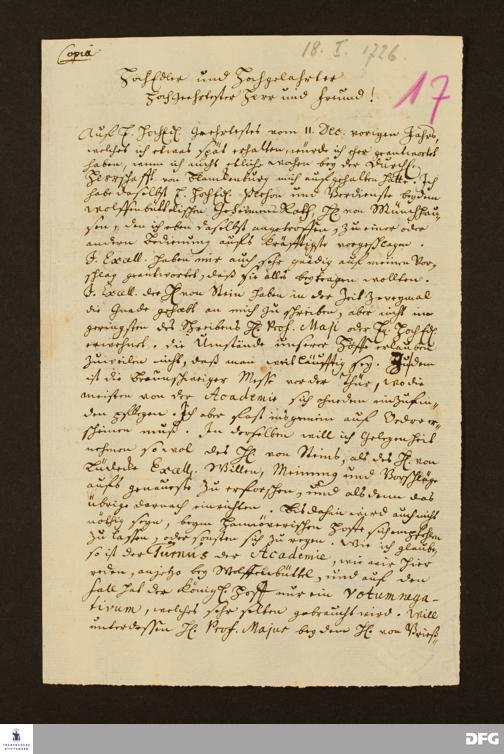 Copia
18. I. 1726.
17
HochEdler und Hochgelahrter
Hochgeehrtester Herr und Freund!
Auf E. HochEd. Geehrtestes vom 11. Dec. vorigen Jahrs,
welches ich etwas spät erhalten, würde ich eher geantwortet
haben, wenn ich nicht etliche Wochen bey der Durchl.
Herrschafft von Blankenburg mich aufgehalten hätte. Ich
habe daselbst E. HochEd. und Verdienste bey dem
Wolffenbüttelischen Geheimen Rath, H. von Münchhau-
sen, den ich eben daselbst angetroffen, zu einer oder
andern Bedienung aufs kräfftigste vorgeschlagen.
S. Excell. haben mir auch sehr gnädig auf meinen Vor-
schlag geantwortet, daß sie alles beytragen wollten.
S. Excell. der H. von Stein haben in der Zeit zweymal
die Gnade gehabt an mich zu schreiben, aber nicht im
geringsten des Schreibens H. Prof. Maji oder E. HochEd.
erwehnet. Die Umstände unserer Höffe erlauben
zuweilen nicht, daß man weitläufftig sey. Zudem
ist die Braunschweiger Messe vor der Thür, wo die
meisten von der Academie sich ohnedem einzufin-
den pflegen. Ich aber fast insgemein auf Ordre er-
scheinen muß. In derselben will ich Gelegenheit
nehmen sowol des H. von Steins, als des H. von
Excell. Willen, Meinung und Vorschläge
aufs genaueste zu erforschen, und alsdenn das
übrige darnach einrichten. Bis dahin wird auch nicht
nöthig seyn, beym Hannöverischen Hoffe sich empfehlen
zu lassen, oder sonsten sich zu regen. Wie ich glaube,
so ist der Turnus der Academie, wie wir hier
reden, anjetzo bey Wolffenbüttel, und auf den
Fall hat der Königl. Hoff nur ein votum nega-
tivum, welches sehr selten gebraucht wird. Will
unterdessen H. Prof. Majus bey dem H. von
FRANCKESCHE STIFTUNGEN
DFG